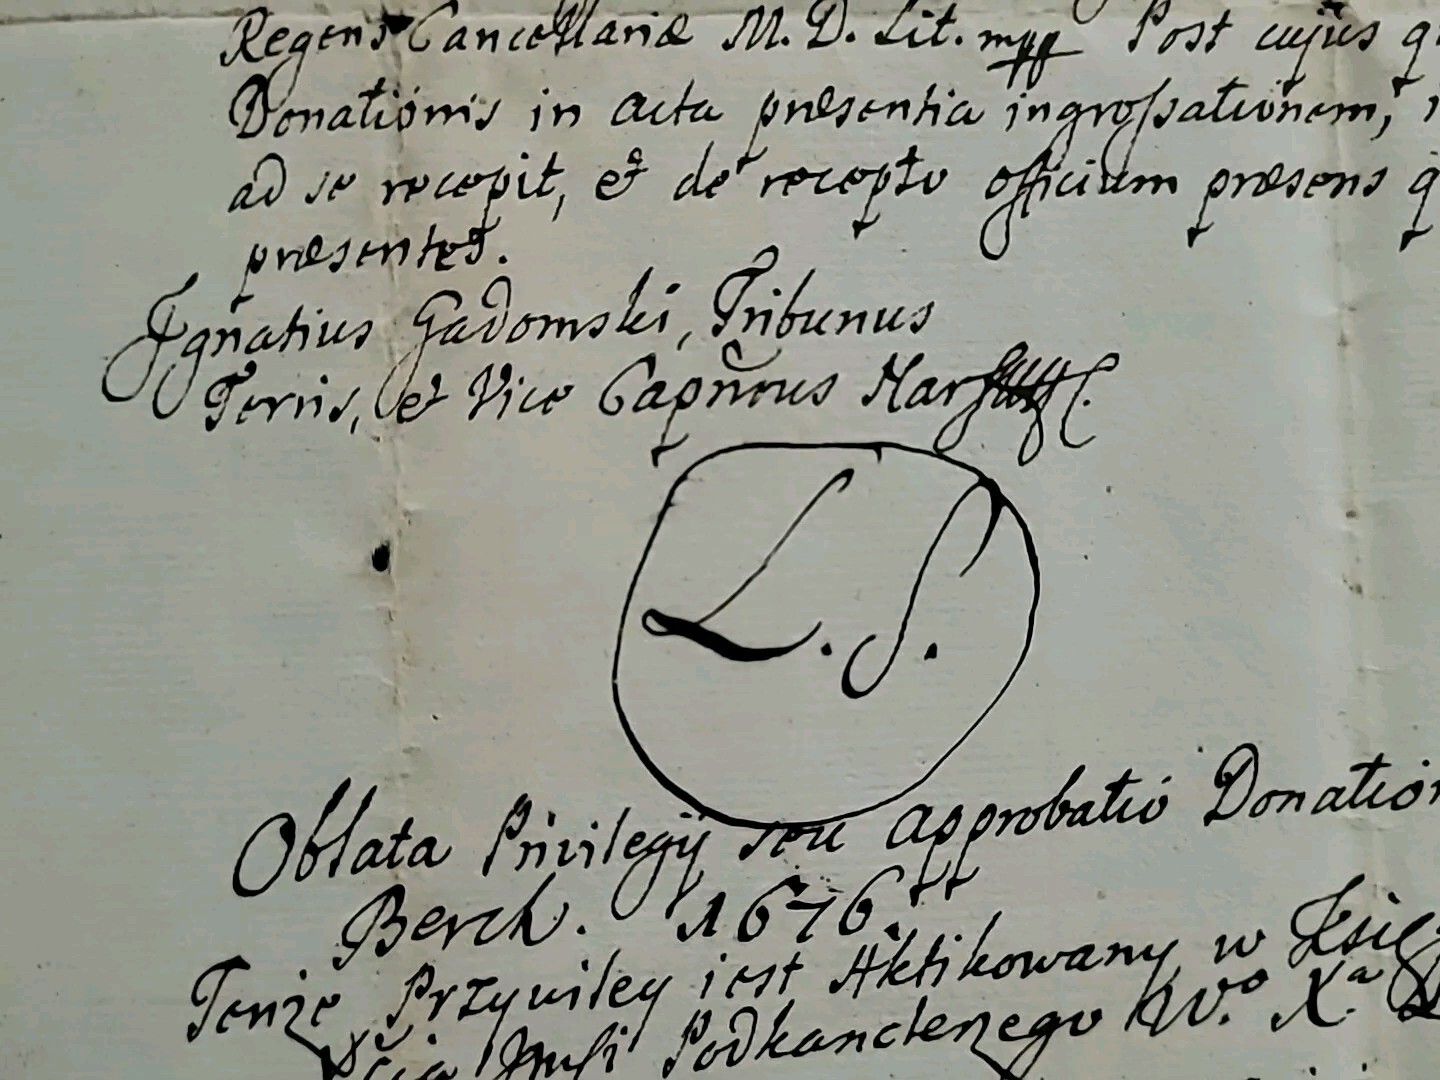 Regens Cancellariæ M. D. Lit. mpp Post cujus
Donationis in acta præsentia ingroſsationem,
ad se recepit, et de recepto officium præsens
præsentes.
Ignatius Gadomski, Tribunus
Terris, et Vice Capñeus
L. S.
Oblata Privilegij seu approbatio Donation
Berch. 1676.
Tenże Przywiley iest Aktikowany w
Podkanclerzego W.º X.ª